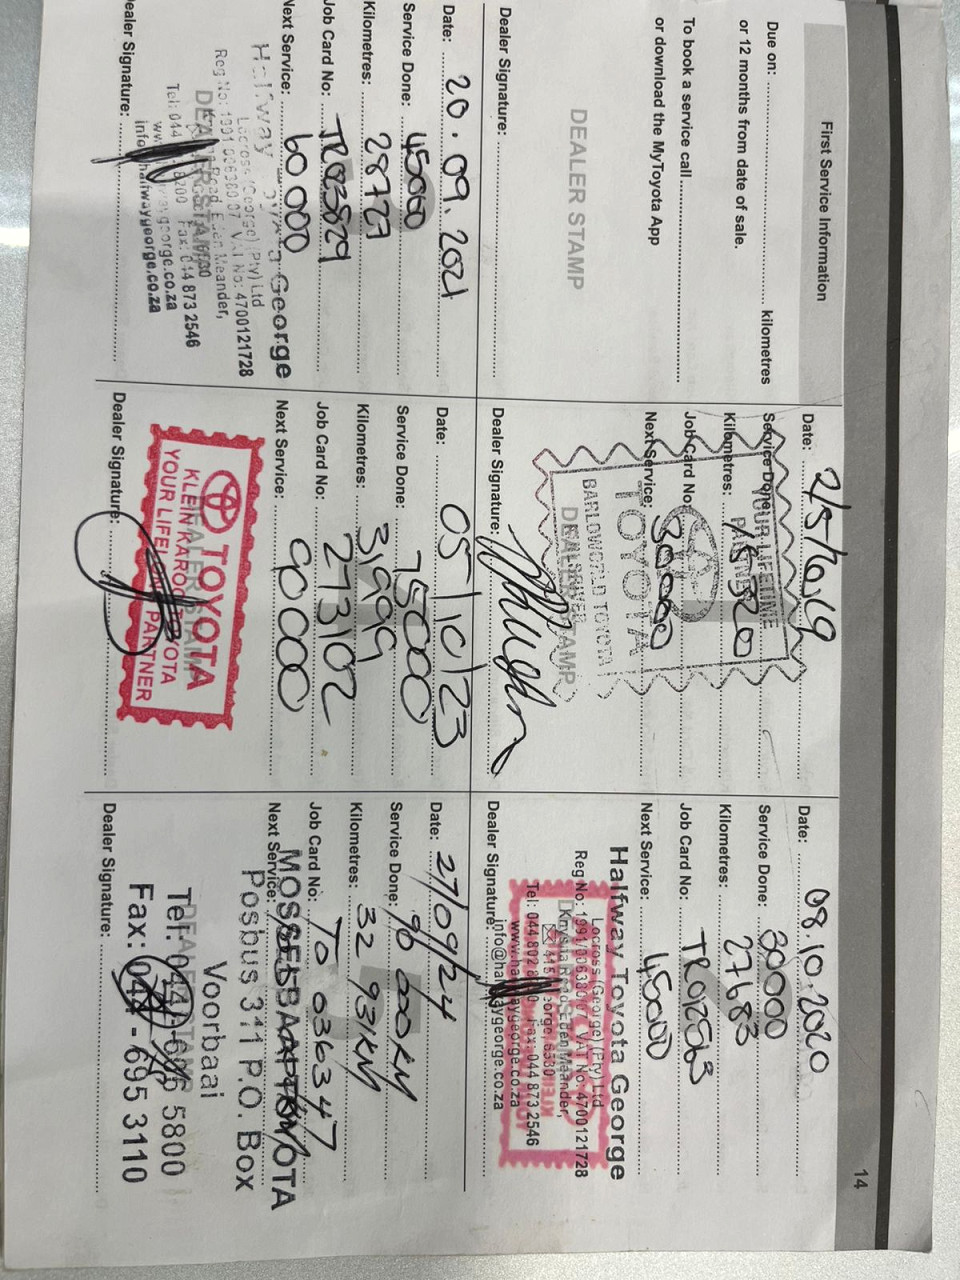 14
First Service Information
Due on: kilometres
or 12 months from date of sale.
To book a service call
or download the MyToyota App
DEALER STAMP
Dealer Signature:
Date: 2/5/2019
Service Done:
Kilometres: 15520
Job Card No:
Next Service: 30000
YOUR LIFETIME
PARTNER
TOYOTA
BARLOWORLD TOYOTA
DEALER STAMP
Dealer Signature:
Date: 08.10.2020
Service Done: 30000
Kilometres: 27683
Job Card No: TR012563
Next Service: 45000
Halfway Toyota George
Locross (George) (Pty) Ltd
Reg No: 1991/006330/07 VAT No: 4700121728
Knysna Road, Eden Meander,
George, 6530
Fax: 044 873 2546
Dealer Signature:
Date: 20.09.2021
Service Done: 45000
Kilometres: 28727
Job Card No: TR023829
Next Service: 60 000
Halfway Toyota George
Locross (George) (Pty) Ltd
VAT No: 4700121728
Eden Meander,
DEALER STAMP
Tel: 044 Fax: 044 873 2546
Dealer Signature:
Date: 05/10/23
Service Done: 75000
Kilometres: 31999
Job Card No: 273102
Next Service: 90 000
TOYOTA
DEALER STAMP
KLEIN KAROO TOYOTA
YOUR LIFELONG PARTNER
Dealer Signature:
Date: 27/09/24
Service Done: 90 000KM
Kilometres: 32 931KM
Job Card No: TO 036347
Next Service:
MOSSELBAAI TOYOTA
Posbus 311 P.O. Box
Voorbaai
DEALER STAMP
Tel: 044-695 5800
Fax: 044 - 695 3110
Dealer Signature: